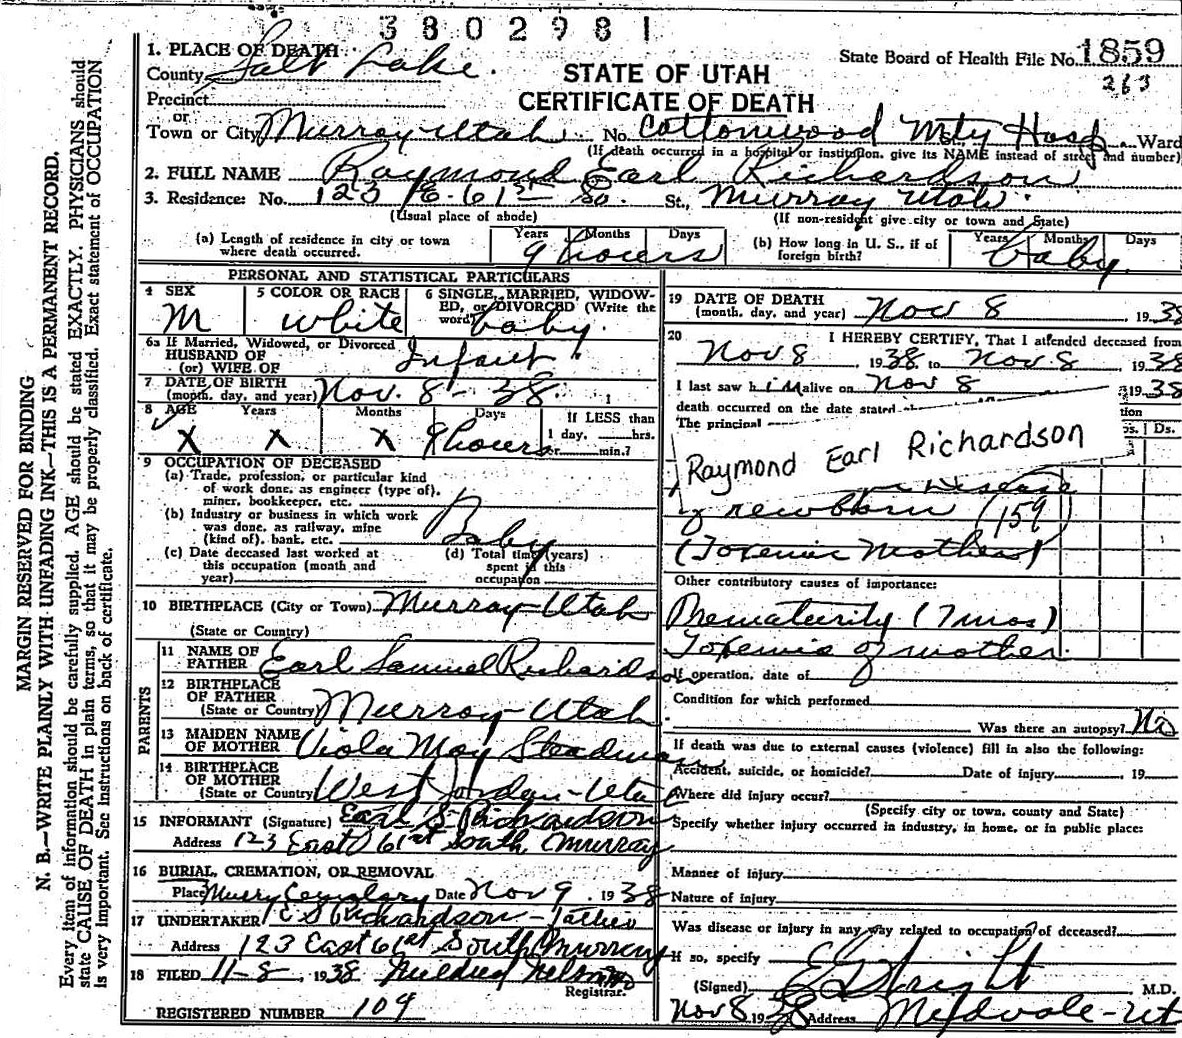 3802981
1. PLACE OF DEATH
County Salt Lake.
State Board of Health File No. 1859
263
STATE OF UTAH
CERTIFICATE OF DEATH
Precinct
or
Town or City Murray Utah No. Cottonwood Mty Hosp. Ward
(If death occurred in a hospital or institution, give its NAME instead of street and number)
2. FULL NAME Raymond Earl Richardson
3. Residence: No. 123 E. 61st So. St., Murray Utah.
(Usual place of abode) (If non-resident give city or town and State)
(a) Length of residence in city or town where death occurred.
Years Months Days
9 hours
(b) How long in U. S., if of foreign birth?
Years Months Days
baby.
PERSONAL AND STATISTICAL PARTICULARS
4 SEX
M
5 COLOR OR RACE
white
6 SINGLE, MARRIED, WIDOW-
ED, or DIVORCED (Write the
word) baby.
6a If Married, Widowed, or Divorced
HUSBAND OF
(or) WIFE OF
Infant
7 DATE OF BIRTH
(month, day, and year) Nov. 8 - 38.
8 AGE Years Months Days If LESS than
X X X 9 hours 1 day, hrs.
or min.?
9 OCCUPATION OF DECEASED
(a) Trade, profession, or particular kind
of work done, as engineer (type of),
miner, bookkeeper, etc.
(b) Industry or business in which work
was done, as railway, mine
(kind of), bank, etc.
Baby
(c) Date deceased last worked at
this occupation (month and
year)
(d) Total time (years)
spent in this
occupation
10 BIRTHPLACE (City or Town) Murray Utah
(State or Country)
PARENTS
11 NAME OF
FATHER Earl Samuel Richardson
12 BIRTHPLACE
OF FATHER
(State or Country) Murray - Utah.
13 MAIDEN NAME
OF MOTHER Viola May Steadman
14 BIRTHPLACE
OF MOTHER
(State or Country) West Jordan - Utah
15 INFORMANT (Signature) Earl S Richardson
Address 123 East 61st South, Murray
16 BURIAL, CREMATION, OR REMOVAL
Place Murry Cemetary Date Nov 9 1938
17 UNDERTAKER E S Richardson - father
Address 123 East 61st South Murray
18 FILED 11-8, 1938 Mildred Nelson
Registrar.
REGISTERED NUMBER 109
19 DATE OF DEATH
(month, day, and year) Nov 8 1938
20 I HEREBY CERTIFY, That I attended deceased from
Nov 8, 1938 to Nov 8, 1938
I last saw him alive on Nov 8 1938
death occurred on the date stated
The principal
Raymond Earl Richardson
Disease
of newborn (159)
(Toxemic Mother)
Other contributory causes of importance:
Prematurity (7 mos)
Toxemia of mother.
If operation, date of
Condition for which performed
Was there an autopsy? No
If death was due to external causes (violence) fill in also the following:
Accident, suicide, or homicide? Date of injury 19
Where did injury occur?
(Specify city or town, county and State)
Specify whether injury occurred in industry, in home, or in public place:
Manner of injury
Nature of injury
Was disease or injury in any way related to occupation of deceased?
If so, specify
(Signed) E G Wright M.D.
Nov 8, 1938 Address Midvale - Ut
MARGIN RESERVED FOR BINDING
N. B.—WRITE PLAINLY WITH UNFADING INK—THIS IS A PERMANENT RECORD.
Every item of information should be carefully supplied. AGE should be stated EXACTLY. PHYSICIANS should
state CAUSE OF DEATH in plain terms, so that it may be properly classified. Exact statement of OCCUPATION
is very important. See instructions on back of certificate.